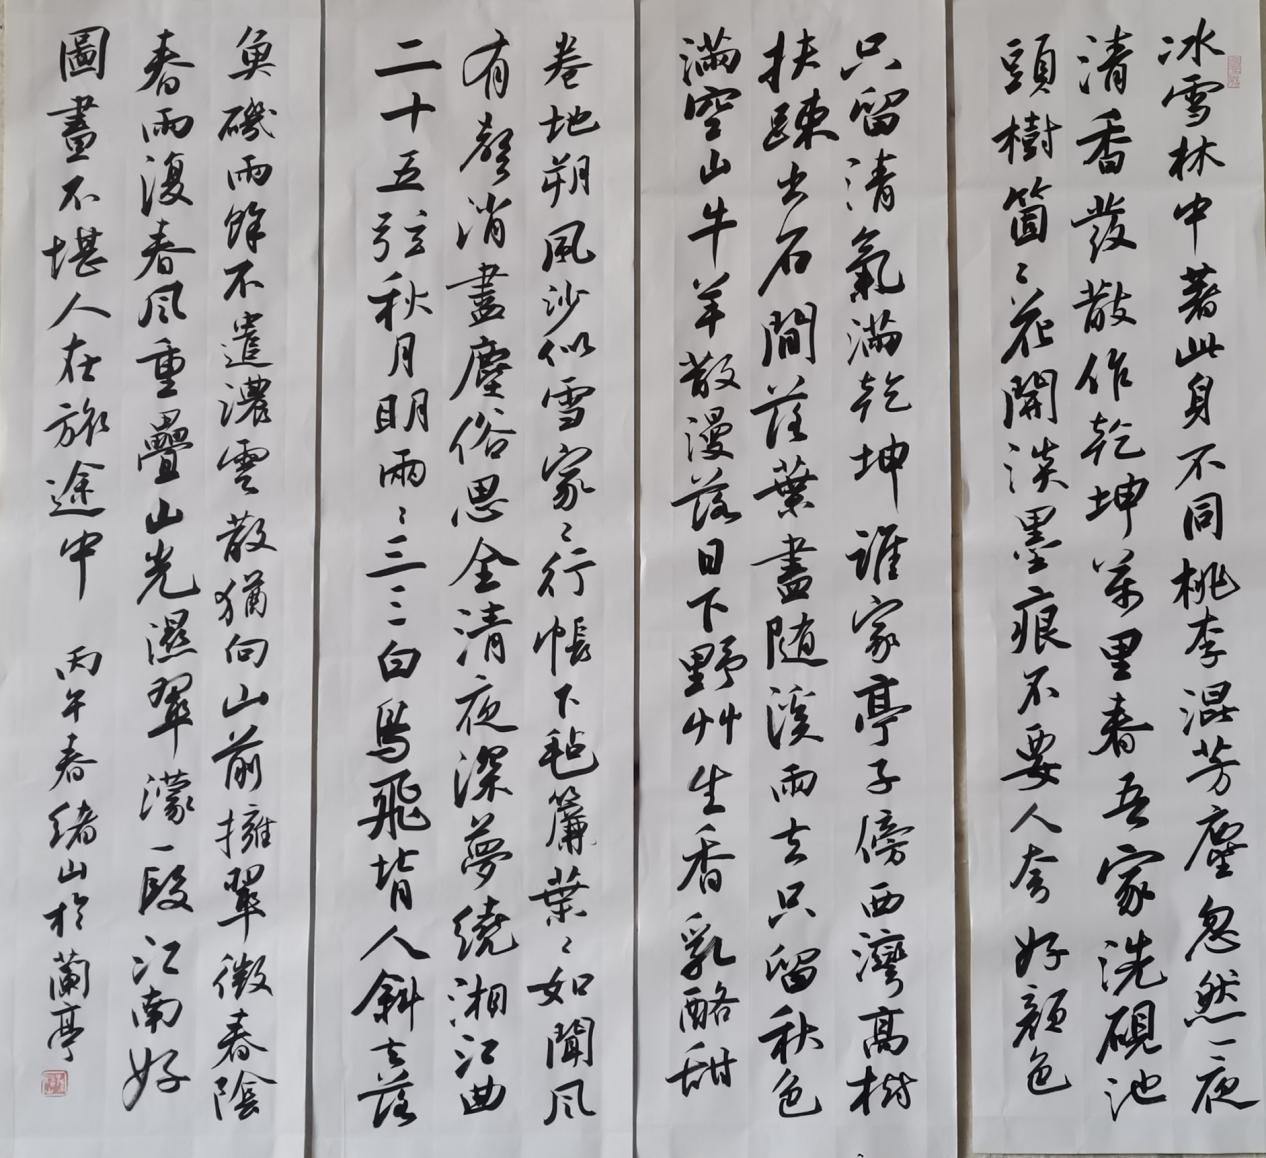 冰雪林中著此身不同桃李混芳塵忽然一夜
清香發散作乾坤萬里春吾家洗硯池
頭樹箇〻花開淡墨痕不要人夸好顏色
只留清氣滿乾坤誰家亭子傍西灣高樹
扶疎出石間落葉盡隨溪雨去只留秋色
滿空山牛羊散漫落日下野艸生香乳酪甜
卷地朔風沙似雪家〻行帳下毡簾葉〻如聞風
有聲消盡塵俗思全清夜深夢繞湘江曲
二十五弦秋月明兩〻三〻白鳥飛背人斜去落
魚磯雨餘不遣濃雲散猶向山前擁翠微春陰
春雨復春風重疊山光濕翠濛一段江南好
圖畫不堪人在旅途中
丙午春緒山於蘭亭